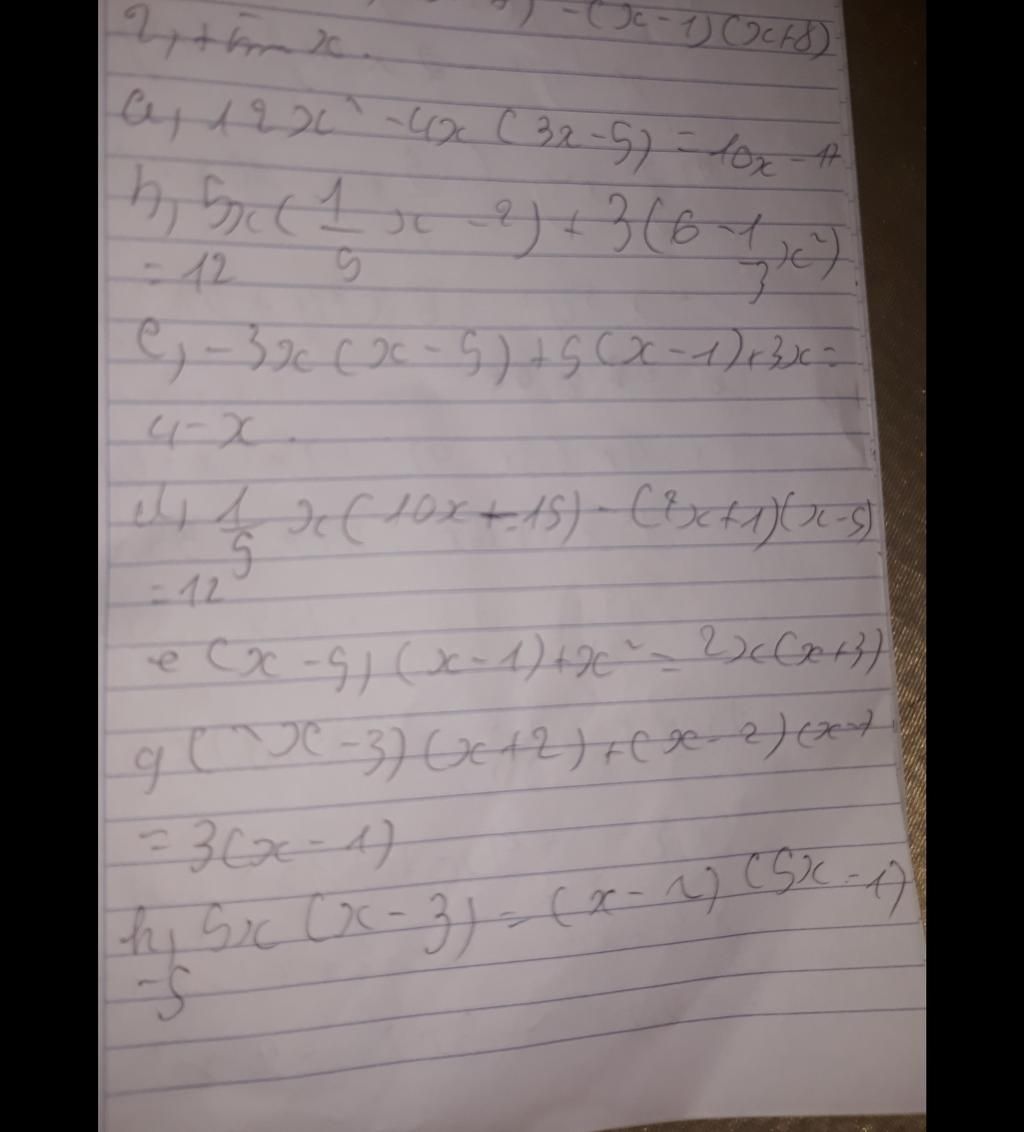 ) - (x-1)(x+8)
2, tìm x.
a, 12x² - 4x (3x-5) = 10x - 17
b, 5x(1/5 x - 2) + 3(6 - 1/3 x²)
= 12
c, -3x(x-5) + 5(x-1) + 3x =
4-x.
d, 1/5 x(10x+-15) - (2x+1)(x-5)
= 12
e (x-5)(x-1)+x² = 2x(x+3)
g ( x-3)(x+2)+(x-2)(x
= 3(x-1)
h, 5x (x-3) = (x-2) (5x-1)
-5